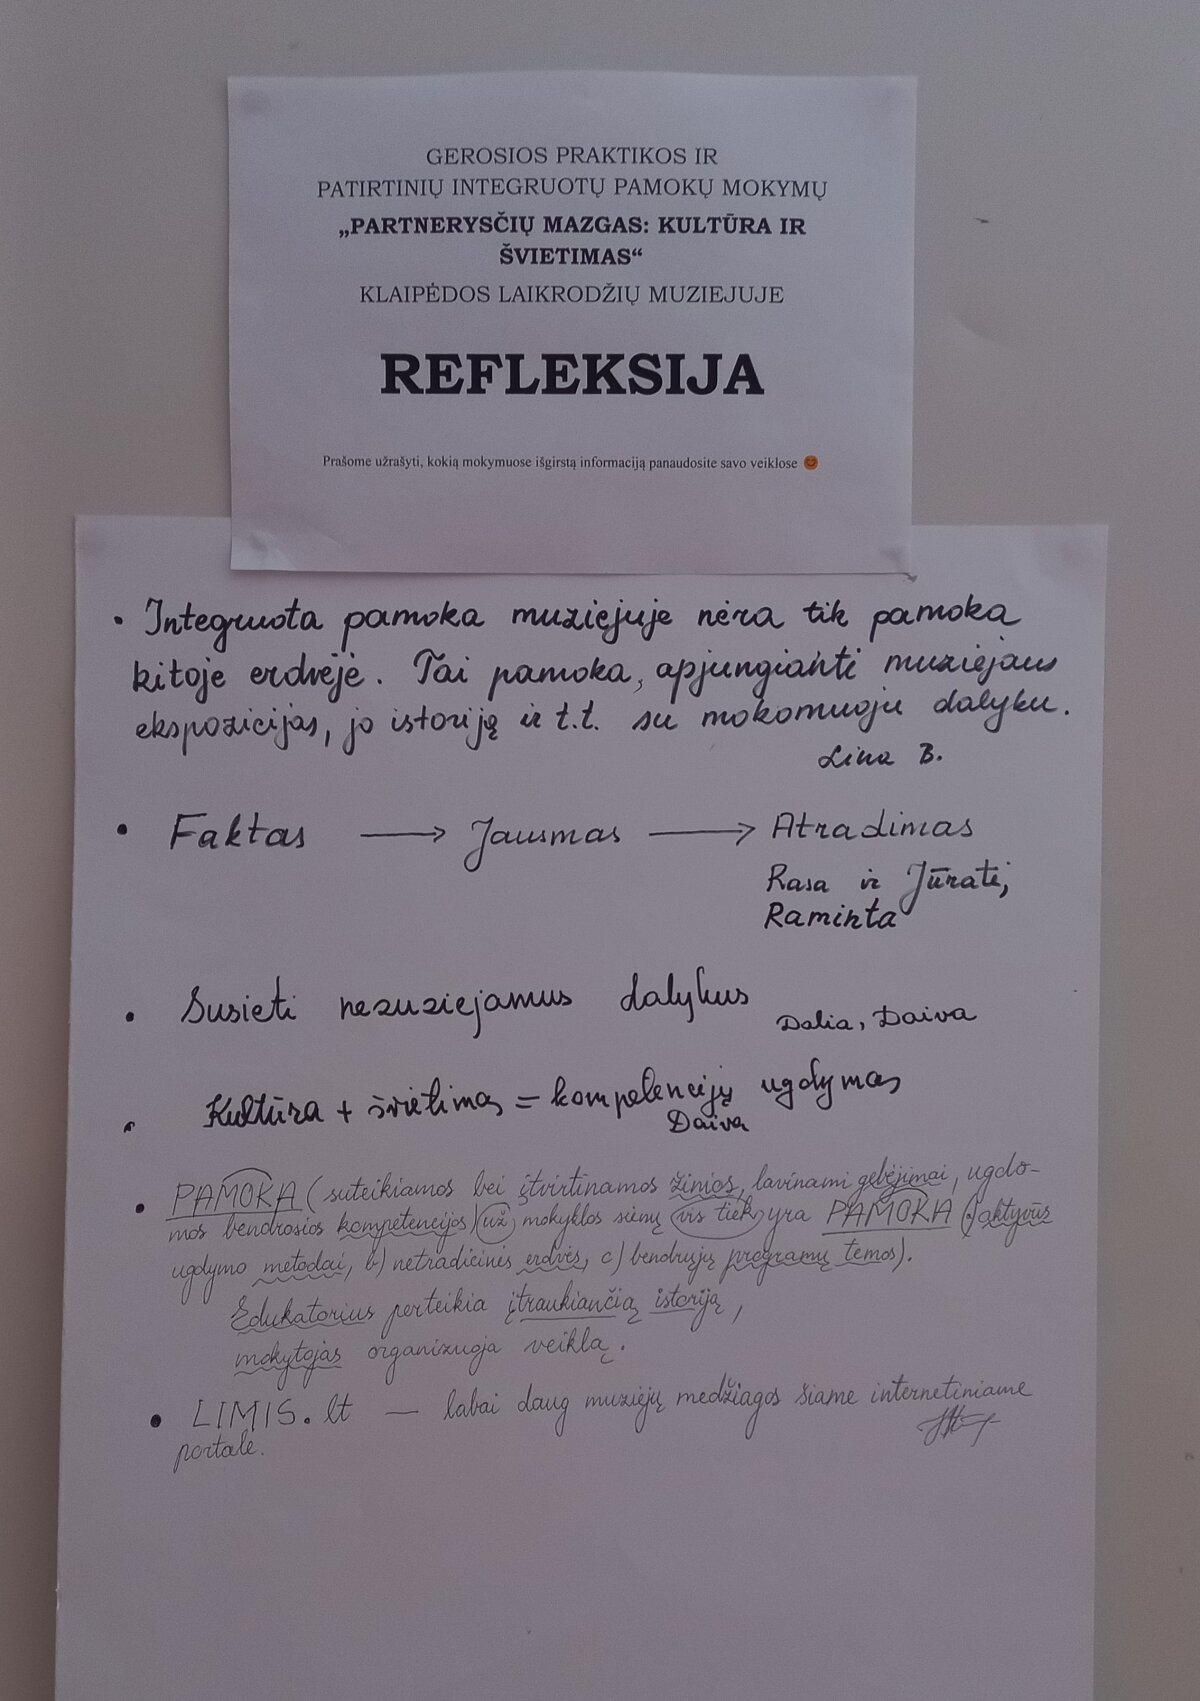 GEROSIOS PRAKTIKOS IR
PATIRTINIŲ INTEGRUOTŲ PAMOKŲ MOKYMŲ
„PARTNERYSČIŲ MAZGAS: KULTŪRA IR
ŠVIETIMAS“
KLAIPĖDOS LAIKRODŽIŲ MUZIEJUJE
REFLEKSIJA
Prašome užrašyti, kokią mokymuose išgirstą informaciją panaudosite savo veiklose 😊
• Integruota pamoka muziejuje nėra tik pamoka
kitoje erdvėje. Tai pamoka, apjungianti muziejaus
ekspozicijas, jo istoriją ir t.t. su mokomuoju dalyku.
Lina B.
• Faktas → Jausmas → Atradimas
Rasa ir Jūratė,
Raminta
• Susieti nesusiejamus dalykus
Dalia, Daiva
• Kultūra + švietimas = kompetencijų ugdymas
Daiva
• PAMOKA (suteikiamos bei įtvirtinamos žinios, lavinami gebėjimai, ugdo-
mos bendrosios kompetencijos) už mokyklos sienų vis tiek yra PAMOKA (aktyvūs
ugdymo metodai, b) netradicinės erdvės, c) bendrųjų programų temos).
Edukatorius perteikia įtraukiančią istoriją,
mokytojas organizuoja veiklą.
• LIMIS.lt — labai daug muziejų medžiagos šiame internetiniame
portale.